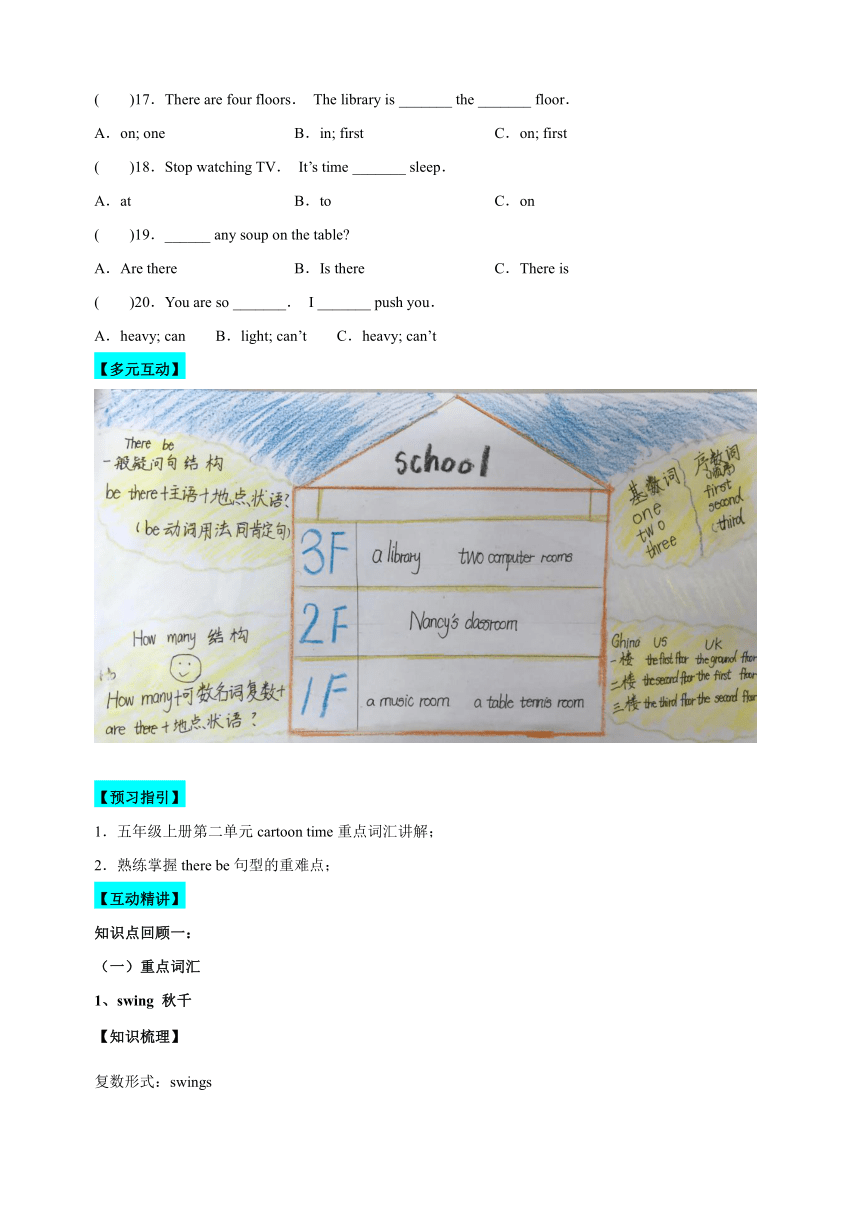 (  )17．There are four floors． The library is _______ the _______ floor．
A．on; one B．in; first C．on; first
(  )18．Stop watching TV． It’s time _______ sleep．
A．at B．to C．on
(  )19．______ any soup on the table?
A．Are there B．Is there C．There is
(  )20．You are so _______． I _______ push you．
A．heavy; can B．light; can’t C．heavy; can’t
【多元互动】
There be
一般疑问句结构
be there+主语+地点状语?
(be动词用法同肯定句)
How many 结构
How many+可数名词复数+
are there+地点状语?
school
3F a library two computer rooms
2F Nancy's classroom
1F a music room a table tennis room
基数词
one
two
three
序数词
first
second
third
China US UK
一楼 the first floor the ground floor
二楼 the second floor the first floor
三楼 the third floor the second floor
【预习指引】
1．五年级上册第二单元 cartoon time 重点词汇讲解；
2．熟练掌握 there be 句型的重难点；
【互动精讲】
知识点回顾一：
（一）重点词汇
1、swing 秋千
【知识梳理】
复数形式：swings